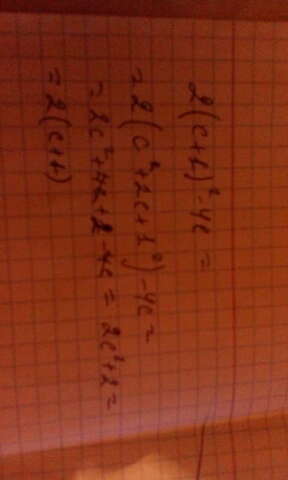 2(c+1)²-4c =
= 2(c²+2c+1²)-4c =
= 2c²+4c+2-4c = 2c²+2 =
= 2(c+1)